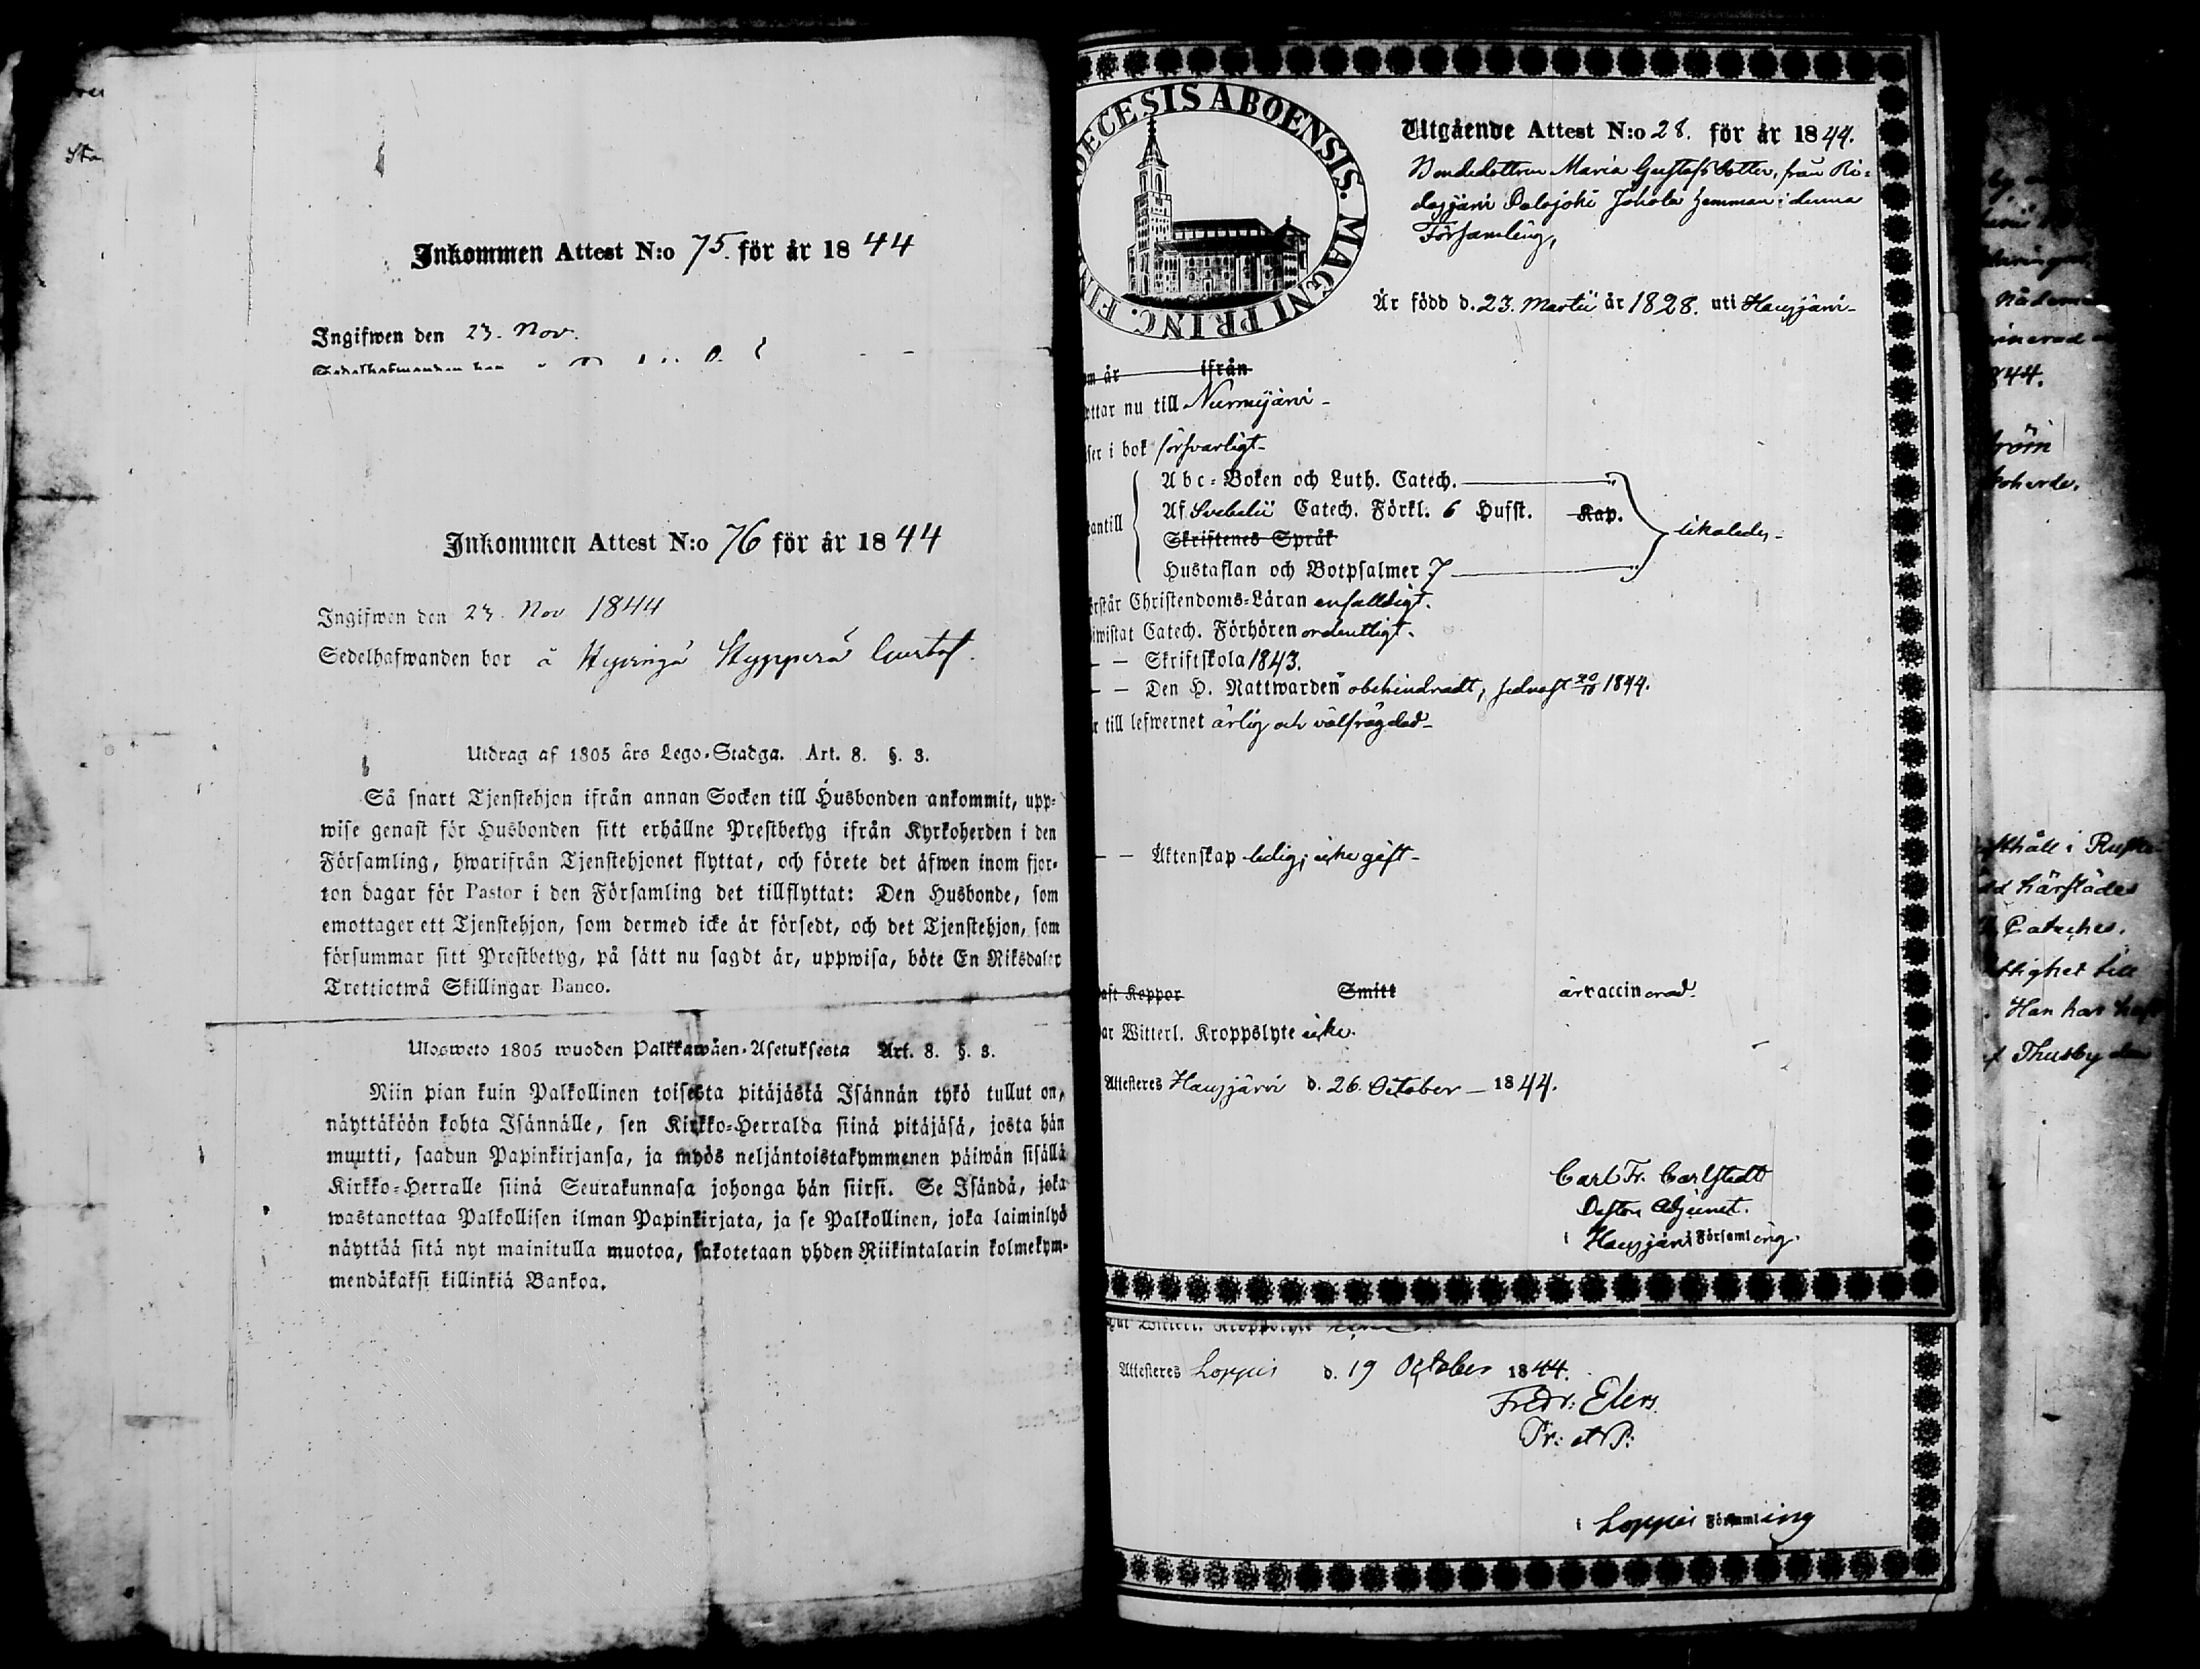 Inkommen Attest N:o 75. för år 1844
Ingifwen den 23. Nov.
Sedelhafwanden bor
Inkommen Attest N:o 76 för år 1844
Ingifwen den 23. Nov 1844
Sedelhafwanden bor å Hyvingä Hyyppärä Gustaf.
Utdrag af 1805 års Lego-Stadga. Art. 8. §. 3.
Så snart Tjenstehjon ifrån annan Socken till Husbonden ankommit, upp-
wise genast för Husbonden sitt erhållne Prestbetyg ifrån Kyrkoherden i den
Församling, hwarifrån Tjenstehjonet flyttat, och förete det äfwen inom fjor-
ton dagar för Pastor i den Församling det tillflyttat: Den Husbonde, som
emottager ett Tjenstehjon, som dermed icke är försedt, och det Tjenstehjon, som
försummar sitt Prestbetyg, på sätt nu sagdt är, uppwisa, böte En Riksdaler
Trettiotwå Skillingar Banco.
Ulosweto 1805 wuoden Palkkawäen-Asetuksesta Art. 8. §. 3.
Niin pian kuin Palkollinen toisesta pitäjästä Isännän tykö tullut on,
näyttäköön kohta Isännälle, sen Kirkko-Herralda siinä pitäjäsä, josta hän
muutti, saadun Papinkirjansa, ja myös neljäntoistakymmenen päiwän sisällä
Kirkko-Herralle siinä Seurakunnasa johonga hän siirsi. Se Isändä, joka
wastanottaa Palkollisen ilman Papinkirjata, ja se Palkollinen, joka laiminlyö
näyttää sitä nyt mainitulla muotoa, sakotetaan yhden Riikintalarin kolmekym-
mendäkaksi killinkiä Bankoa.
DECESIS ABOENSIS. MAGNI PRINC. FIN
Utgående Attest N:o 28. för år 1844.
Bondedottren Maria Gustafsdotter, från Ri-
dasjärvi Palojoki Johola hemman i denna
Församling,
Är född d. 23. Martii år 1828. uti Hausjärvi-
om år ifrån
ttar nu till Nurmijärvi -
ser i bok försvarligt-
antill
Abc-Boken och Luth. Catech.
Af Svebelii Catech. Förkl. 6 Hufst. Kap.
Skriftenes Språk
Hustaflan och Botpsalmer 7
likaledes -
rstår Christendoms-Läran enfalldigt.
iwistat Catech. Förhören ordentligt.
- - Skriftskola 1843.
- - Den H. Nattwarden obehindradt, sednast 20/10 1844.
r till lefwernet ärlig och välfrägdad -
- - Äktenskap ledig, icke gift -
aft Koppor Smitt är vaccinerad.
ar Witterl. Kroppslyte icke.
Attesteres Hausjärvi d. 26. October - 1844.
Carl Fr. Carlstedt
Pastors Adjunct.
i Hausjärvi Församling.
ar Witterl. Kroppslyte
Attesteres Loppis d. 19 October 1844.
Fredr: Elers
Pr: et P:
i Loppis Församling
844.
röm
koherde.
härstädes
Cateches.
Han har haft
Thusby den